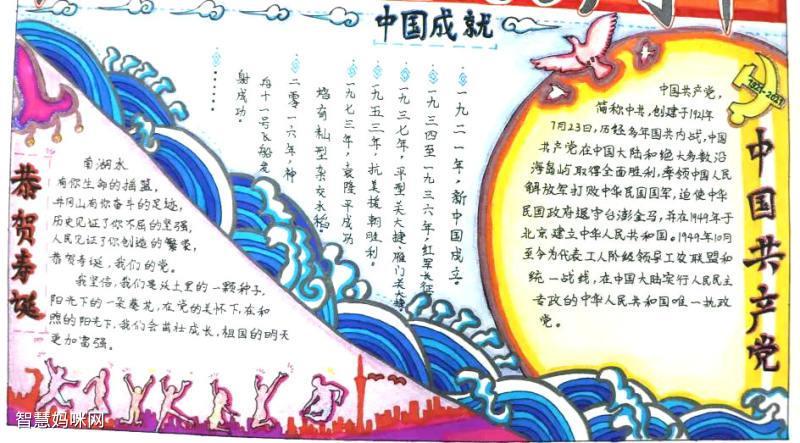 中国成就
一九二一年，新中国成立。
一九三四至一九三六年，红军长征
一九三七年，平型关大捷、雁门关大捷
一九五三年，抗美援朝胜利。
一九七三年，袁隆平成功
培育籼型杂交水稻
二零一六年，神
舟十一号飞船发
射成功。
……
恭贺寿诞
南湖水
有你生命的摇篮，
井冈山有你奋斗的足迹，
历史见证了你不屈的坚强，
人民见证了你创造的繁荣，
恭贺寿诞，我们的党。
我坚信，我们是沃土里的一颗种子，
阳光下的一朵葵花，在党的关怀下，在和
煦的阳光下，我们会茁壮成长，祖国的明天
更加富强。
1921-2021
中国共产党
中国共产党，
简称中共，创建于1921年
7月23日，历经多年国共内战，中国
共产党在中国大陆和绝大多数沿
海岛屿取得全面胜利，率领中国人民
解放军打败中华民国国军，迫使中华
民国政府退守台澎金马，并在1949年于
北京建立中华人民共和国。1949年10月
至今为代表工人阶级领导工农联盟和
统一战线，在中国大陆实行人民民主
专政的中华人民共和国唯一执政
党。
智慧妈咪网